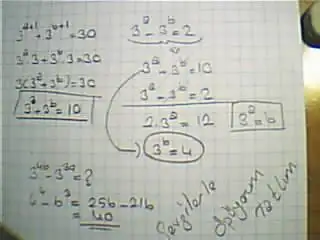 3^{a+1} + 3^{b+1} = 30
3^a 3 + 3^b 3 = 30
3(3^a + 3^b) = 30
3^a + 3^b = 10
3^a - 3^b = 2
3^a - 3^b = 10
3^a - 3^b = 2
2.3^a = 12
3^a = 6
3^b = 4
3^{4a} - 3^{3a} = ?
= 256 - 216
= 40
Sevgilerle
öpüyorum
tatlım